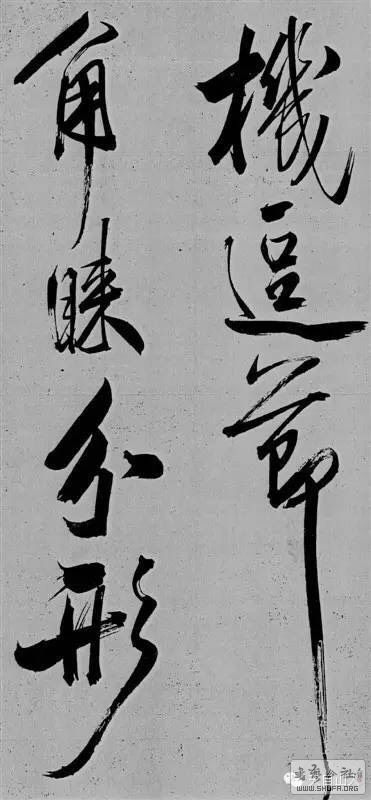 機逗節
角睞分形
书艺公社
WWW.SHUFA.ORG